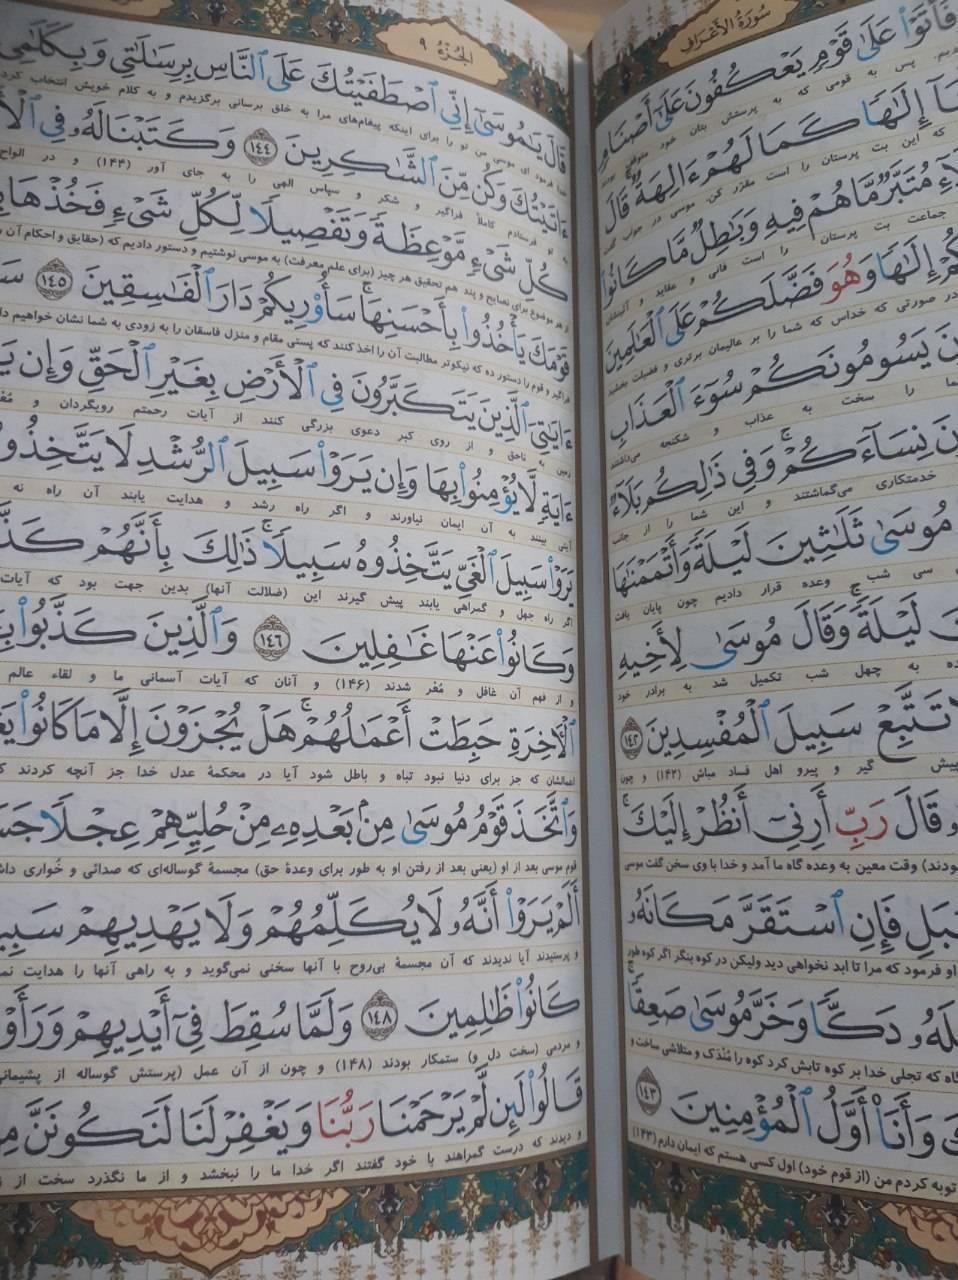 سُورَةُ الأَعْرَافِ
فَأَتَوْا۟ عَلَىٰ قَوْمٍ يَعْكُفُونَ عَلَىٰٓ أَصْنَامٍ
پس به قومی که به پرستش بتان خود متوقف بودند
إِلَٰهًا كَمَا لَهُمْ ءَالِهَةٌ قَالَ
که این بت پرستان را است مقرّر کن. موسی در جواب گفت
مُتَبَّرٌ مَّا هُمْ فِيهِ وَبَٰطِلٌ مَّا كَانُوا۟
جماعت بت پرستان را است فانی و عقاید و آئینشان
إِلَٰهًا وَهُوَ فَضَّلَكُمْ عَلَى ٱلْعَٰلَمِينَ
در صورتی که خداس که شما را بر عالمیان برتری و فضیلت بخشید
يَسُومُونَكُمْ سُوٓءَ ٱلْعَذَابِ
را سخت به عذاب و شکنجه می‌داشتند
نِسَآءَكُمْ ۚ وَفِى ذَٰلِكُم بَلَآءٌ
خدمتکاری می‌گماشتند و این شما را از جانب
مُوسَىٰ ثَلَٰثِينَ لَيْلَةً وَأَتْمَمْنَٰهَا
سی شب وعده قرار دادیم چون پایان یافت
لَيْلَةً ۚ وَقَالَ مُوسَىٰ لِأَخِيهِ
به چهل شب تکمیل شد به برادر خود
تَتَّبِعْ سَبِيلَ ٱلْمُفْسِدِينَ ١٤٢
پیش گیر و پیرو اهل فساد مباش (۱۴۲) و چون
قَالَ رَبِّ أَرِنِىٓ أَنظُرْ إِلَيْكَ ۚ
وقت معین به وعده گاه ما آمد و خدا با وی سخن گفت موسی
فَإِنِ ٱسْتَقَرَّ مَكَانَهُۥ
او فرمود که مرا تا ابد نخواهی دید ولیکن در کوه بنگر اگر کوه طور
دَكًّا وَخَرَّ مُوسَىٰ صَعِقًا ۚ
که تجلی خدا بر کوه تابش کرد کوه را مُندَک و متلاشی ساخت و
وَأَنَا۠ أَوَّلُ ٱلْمُؤْمِنِينَ ١٤٣
توبه کردم من (از قوم خود) اول کسی هستم که ایمان دارم (۱۴۳)
الجُزْءُ ٩
قَالَ يَٰمُوسَىٰٓ إِنِّى ٱصْطَفَيْتُكَ عَلَى ٱلنَّاسِ بِرِسَٰلَٰتِى وَبِكَلَٰمِى
خدا فرمود ای موسی من تو را برای اینکه پیغام‌های مرا به خلق برسانی برگزیدم و به کلام خویش انتخاب
ءَاتَيْتُكَ وَكُن مِّنَ ٱلشَّٰكِرِينَ ١٤٤ وَكَتَبْنَا لَهُۥ فِى
به تو فرستادم کاملاً فراگیر و شکر و سپاس الهی را به جای آور (۱۴۴) و در الواح
كُلِّ شَىْءٍ مَّوْعِظَةً وَتَفْصِيلًا لِّكُلِّ شَىْءٍ فَخُذْهَا
از هر موضوع برای نصایح و پند هم تحقیق هر چیز (برای علم معرفت) به موسی نوشتیم و دستور دادیم که (حقایق و احکام آن
قَوْمَكَ يَأْخُذُوا۟ بِأَحْسَنِهَا ۚ سَأُو۟رِيكُمْ دَارَ ٱلْفَٰسِقِينَ ١٤٥
فراگیر و قوم را دستور ده که نیکوتر مطالبت آن را اخذ کنند که پستی مقام و منزل فاسقان را به زودی به شما نشان خواهیم
ءَايَٰتِىَ ٱلَّذِينَ يَتَكَبَّرُونَ فِى ٱلْأَرْضِ بِغَيْرِ ٱلْحَقِّ وَإِن
زمین به ناحق و از روی کبر دعوی بزرگی کنند از آیات رحمتم رویگردان و
ءَايَةٍ لَّا يُؤْمِنُوا۟ بِهَا وَإِن يَرَوْا۟ سَبِيلَ ٱلرُّشْدِ لَا يَتَّخِذُوهُ
آیتی بینند به آن ایمان نیاورند و اگر راه رشد و هدایت یابند آن راه نه
يَرَوْا۟ سَبِيلَ ٱلْغَىِّ يَتَّخِذُوهُ سَبِيلًا ۚ ذَٰلِكَ بِأَنَّهُمْ
اگر راه جهل و گمراهی یابند پیش گیرند این (ضلالت آنها) بدین جهت بود که آیات
وَكَانُوا۟ عَنْهَا غَٰفِلِينَ ١٤٦ وَٱلَّذِينَ كَذَّبُوا۟
و از فهم آن غافل و مُعْر شدند (۱۴۶) و آنان که آیات آسمانی ما و لقاء عالم
ٱلْءَاخِرَةِ حَبِطَتْ أَعْمَٰلُهُمْ ۚ هَلْ يُجْزَوْنَ إِلَّا مَا كَانُوا۟
اعمالشان که جز برای دنیا نبود تباه و باطل شود آیا در محکمهٔ عدل خدا جز آنچه کردند
وَٱتَّخَذَ قَوْمُ مُوسَىٰ مِنۢ بَعْدِهِۦ مِنْ حُلِيِّهِمْ عِجْلًا
قوم موسی بعد از او (یعنی بعد از رفتن او به طور برای وعدهٔ حق) مجسمهٔ گوساله‌ای که صدائی و خُواری
أَلَمْ يَرَوْا۟ أَنَّهُۥ لَا يُكَلِّمُهُمْ وَلَا يَهْدِيهِمْ
و پرستیدند آیا ندیدند که آن مجسمهٔ بی‌روح با آنها سخنی نمی‌گوید و به راهی آنها را هدایت
كَانُوا۟ ظَٰلِمِينَ ١٤٨ وَلَمَّا سُقِطَ فِىٓ أَيْدِيهِمْ وَرَأَوْا۟
و مردمی (سخت دل و) ستمکار بودند (۱۴۸) و چون از آن عمل (پرستش گوساله از پشیمانی
قَالُوا۟ لَئِن لَّمْ يَرْحَمْنَا رَبُّنَا وَيَغْفِرْ لَنَا لَنَكُونَنَّ
و دیدند که درست گمراهند با خود گفتند اگر خدا ما را نبخشد و از ما نگذرد سخت از